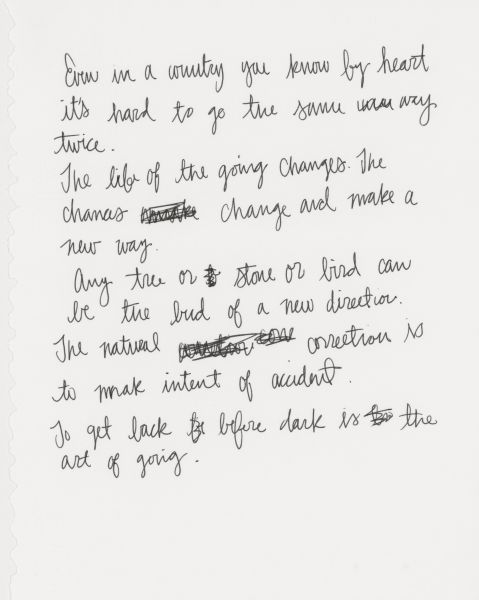 Even in a country you know by heart
it's hard to go the same way
twice.
The life of the going changes. The
chances change and make a
new way.
Any tree or stone or bird can
be the bud of a new direction.
The natural correction is
to make intent of accident.
To get back before dark is the
art of going.